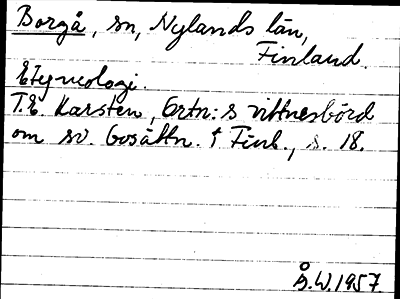 Borgå, sn, Nylands län,
Finland.
Etymologi.
T.E. Karsten, Ortn:s vittnesbörd
om sv. bosättn. i Finl., s. 18.
Å.W. 1957.